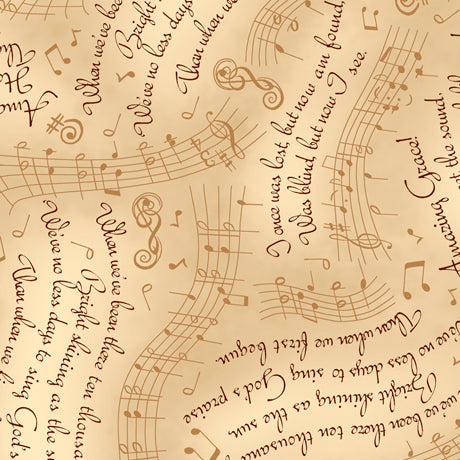 When we've bee
Bright
We've no less days
Than when w
Ama
I once was lost, but now am found,
Was blind, but now I see.
Amazing Grace!
t the sound,
When we've been there ten thousa
Bright shining as the su
We've no less days to sing God's
Than when we f
we've been there ten thousand
Bright shining as the sun.
ve no less days to sing God's praise
Than when we first begun.